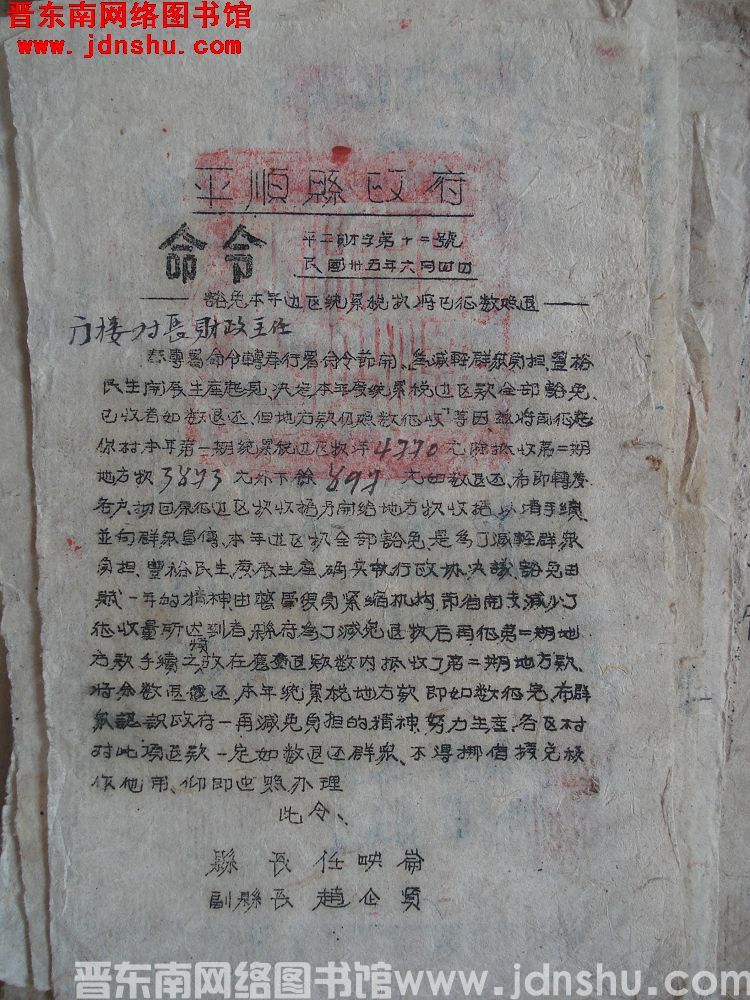 晋东南网络图书馆
www.jdnshu.com
平順縣政府
命令
平二財字第十二號
民國卅五年六月四日
豁免本年边区統累税款將已征数照退
村長財政主任
奉專署命令轉奉行署命令節開、為減輕群眾負担、豐裕
民生開展生產起見、決定本年度統累税边区款全部豁免、
已收者如数退还、但地方款仍照数征收等因
你村本年第一期統累税边区款洋4770元除抵收第二期
地方款3873元外下餘897元如数退还、希即轉發
各户抽回原征边区款收據另開給地方款收據以清手續
並向群眾宣傳、本年边区款全部豁免是為了減輕群眾
負担、豐裕民生、發展生產、确实執行政协決議、豁免田
賦一年的精神由整軍復員緊縮机构節省開支減少了
征收量所达到者、縣府為了減免退款后再征第二期地
方款手續之煩故在應退款数内抵收了第二期地方款、
將余数退还、本年統累税地方款即如数征完、希群
眾認识政府一再減免負担的精神、努力生產、各区村
对此項退款一定如数退还群眾、不得挪借
作他用、仰即遵照办理
此令、
縣長任映崙
副縣長趙企賢
晋东南网络图书馆www.jdnshu.com